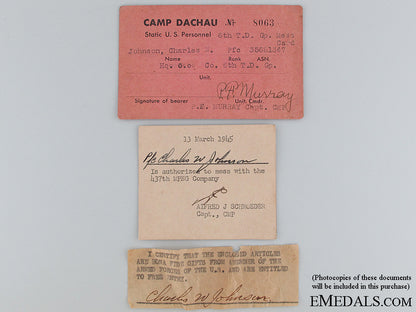 CAMP DACHAU No 8063
Static U.S. Personnel 6th T.D. Gp. Mess Card
Johnson, Charles W. Pfc
Name Rank ASN.
Hq. & Co. 6th T.D. Gp.
Unit.
P.E. Murray
Signature of bearer Unit Cmdr.
P.E. MURRAY Capt. CMP
13 March 1945
Pfc Charles W Johnson
Is authorized to mess with the
437th MPEG Company
ALFRED J SCHROEDER
Capt., CMP
I CERTIFY THAT THE ENCLOSED ARTICLES
ARE BONA FIDE GIFTS FROM A MEMBER OF THE
ARMED FORCES OF THE U.S. AND ARE ENTITLED
TO FREE ENTRY.
Charles W Johnson
(Photocopies of these documents
will be included in this purchase)
EMEDALS.COM